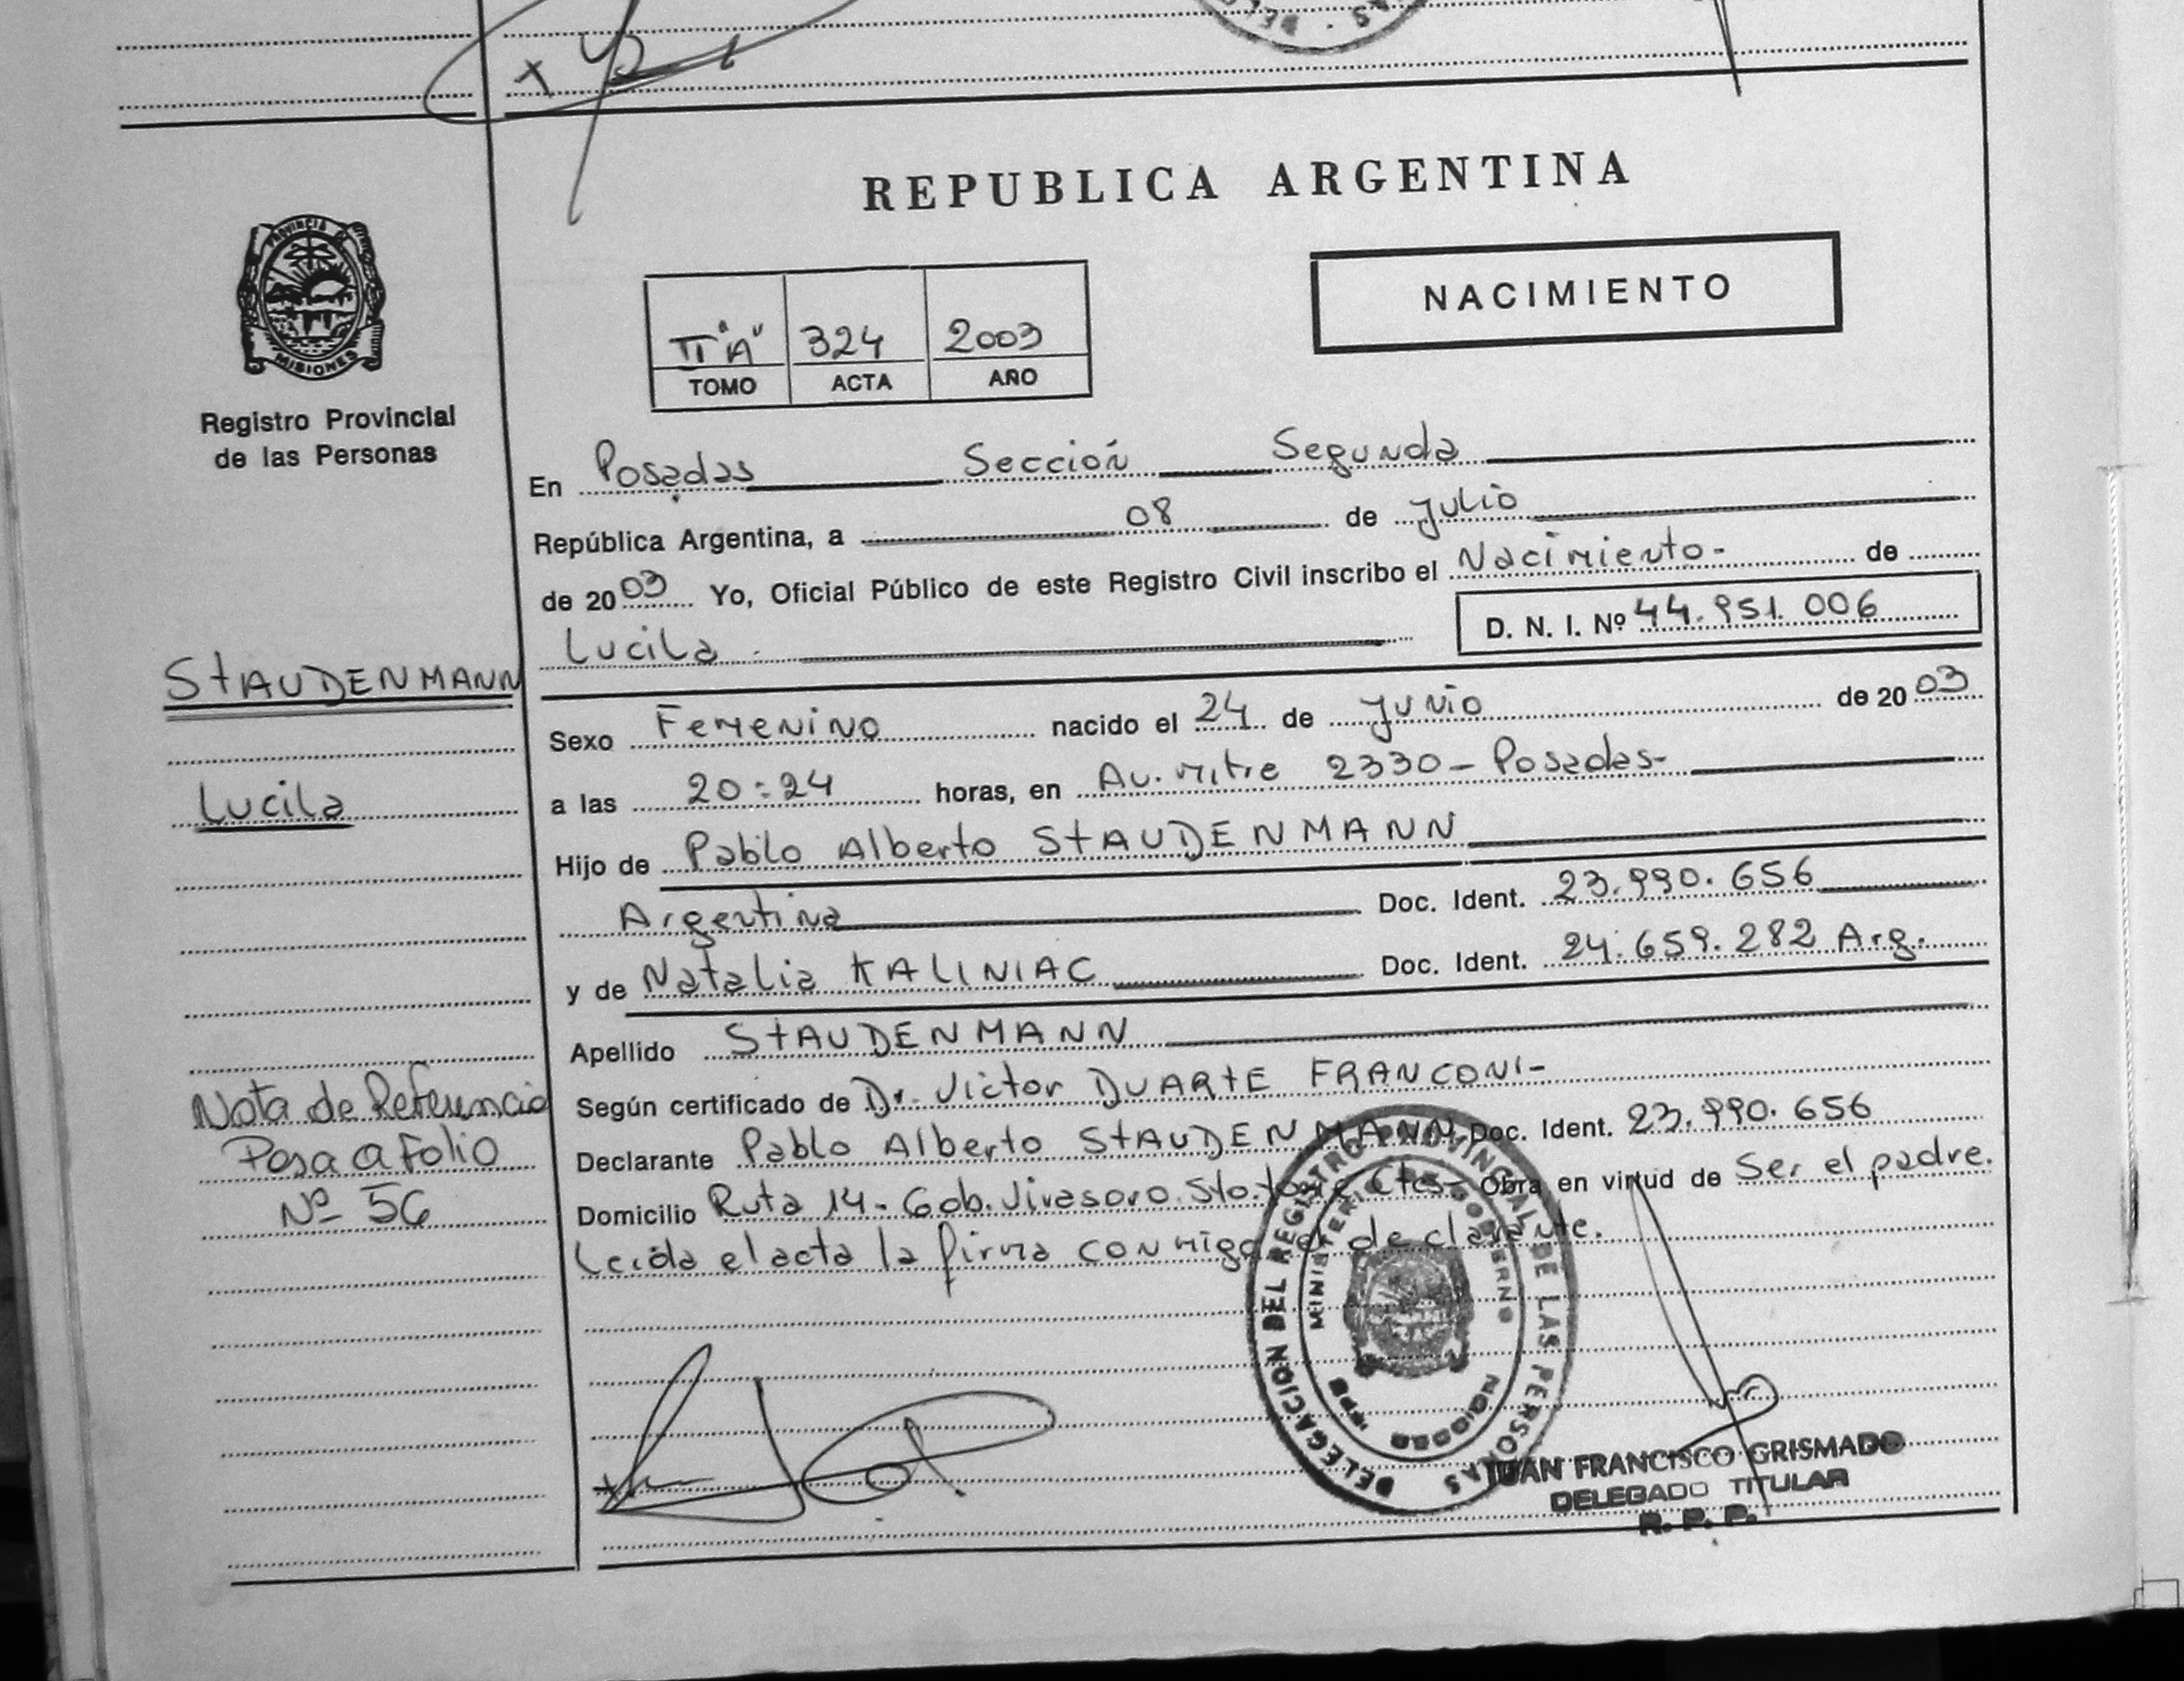 REPUBLICA ARGENTINA
NACIMIENTO
II "A" 324 2003
TOMO ACTA AÑO
PROVINCIA DE MISIONES
Registro Provincial
de las Personas
En Posadas Sección Segunda
República Argentina, a 08 de Julio
de 2003 Yo, Oficial Público de este Registro Civil inscribo el Nacimiento- de
Lucila D. N. I. Nº 44.951.006
STAUDENMANN
Lucila
Sexo Femenino nacido el 24 de Junio de 2003
a las 20:24 horas, en Av. Mitre 2330 - Posadas-
Hijo de Pablo Alberto STAUDENMANN
Argentina Doc. Ident. 23.990.656
y de Natalia KALINIAC Doc. Ident. 24.659.282 Arg.
Apellido STAUDENMANN
Según certificado de Dr. Victor DUARTE FRANCONI-
Declarante Pablo Alberto STAUDENMANN Doc. Ident. 23.990.656
Domicilio Ruta 14 - Gob. Virasoro. Sto. Tomé Ctes- Obra en virtud de Ser el padre.
Leida el acta la firma conmigo el declarante.
Nota de Referencia
Pasa a Folio
Nº 56
DELEGACION DEL REGISTRO PROVINCIAL DE LAS PERSONAS
MINISTERIO GOBIERNO
JUAN FRANCISCO GRISMADO
DELEGADO TITULAR
R. P. P.